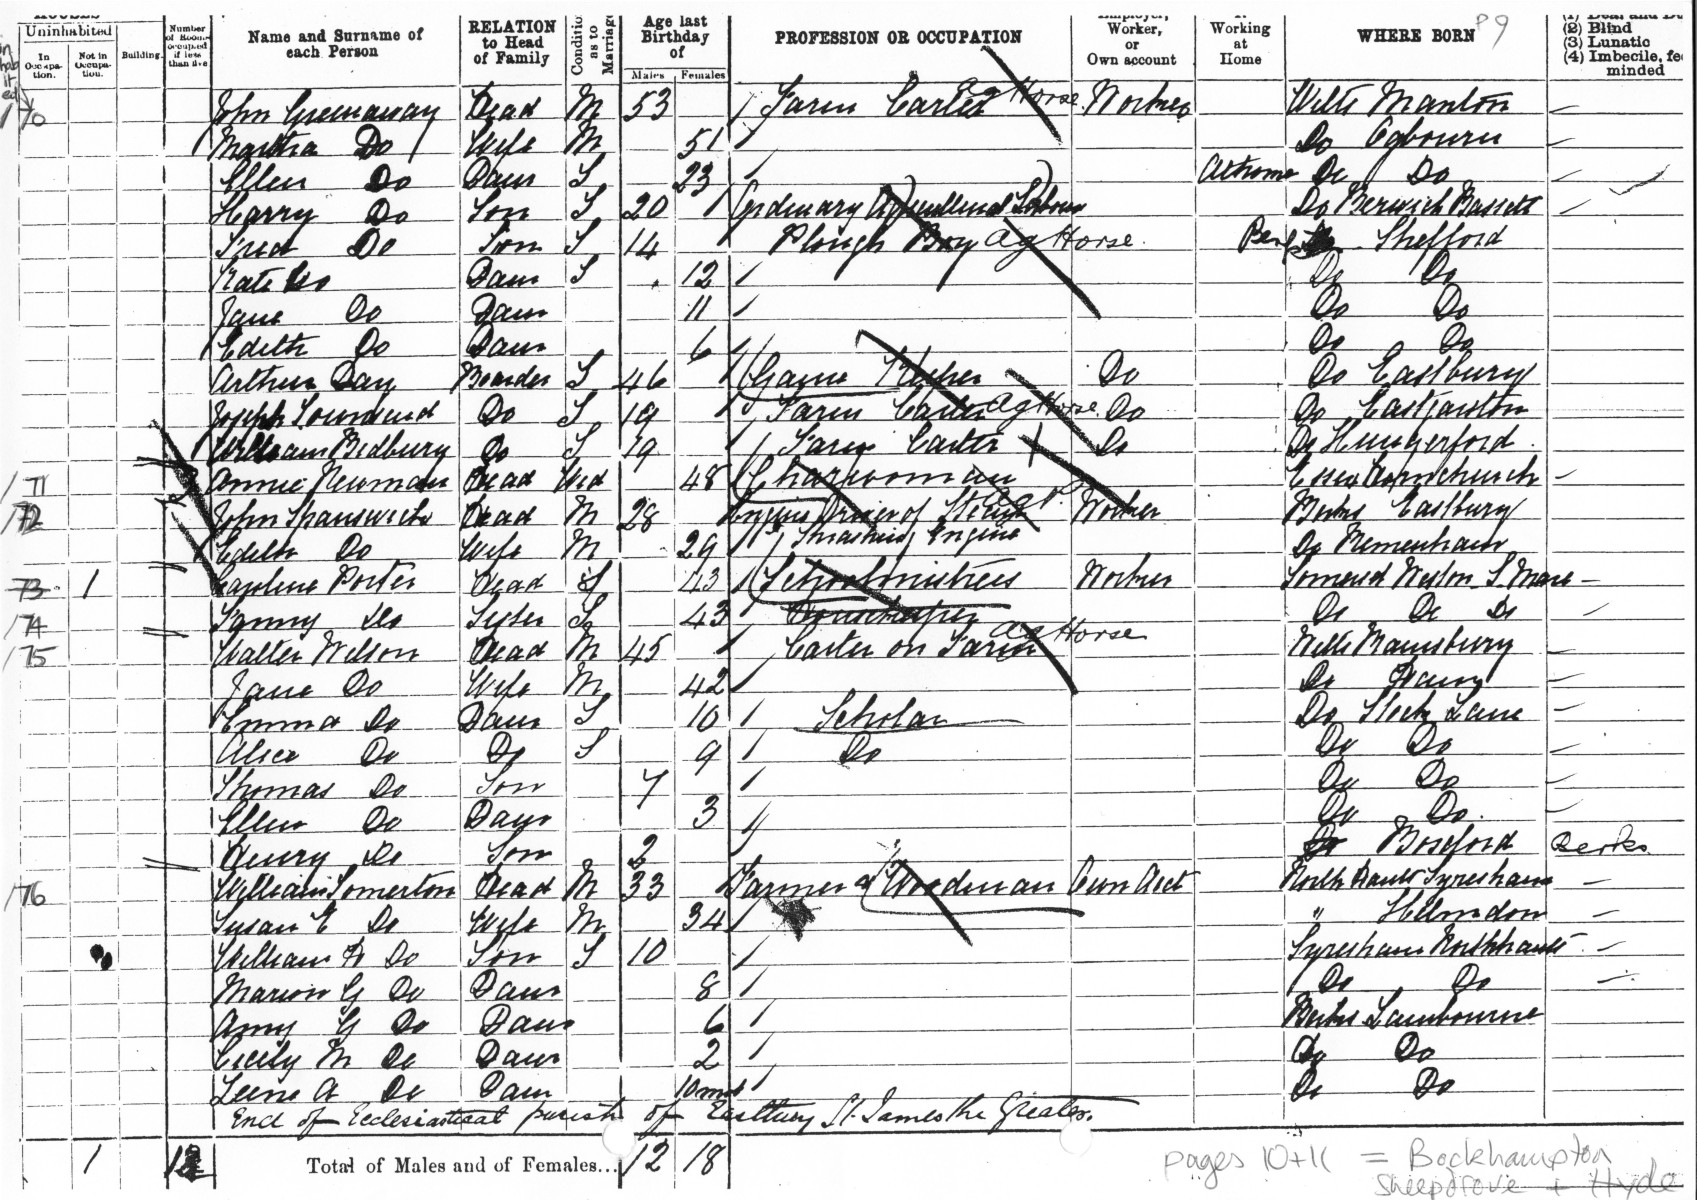 HOUSES
Uninhabited
In Occupa- tion.
Not in Occupa- tion.
Building.
Number of Rooms occupied if less than five
Name and Surname of each Person
RELATION to Head of Family
Condition as to Marriage
Age last Birthday of
Males Females
PROFESSION OR OCCUPATION
Employer, Worker, or Own account
If Working at Home
WHERE BORN P 9
(1) Deaf and Du
(2) Blind
(3) Lunatic
(4) Imbecile, fee minded
170 John Greenaway Head M 53 Farm Carter Ag Horse Worker Wilts Manton
Martha Do Wife M 51 Do Ogbourn
Ellen Do Daur S 23 At home Do Do
Harry Do Son S 20 Ordinary Agricultural Labour Do Berwick Bassett
Fred Do Son S 14 Plough Boy Ag Horse Berks Shefford
Kate Do Daur S 12 Do Do
Jane Do Daur 11 Do Do
Edith Do Daur 6 Do Do
Arthur Day Boarder S 46 Game Keeper Do Do Eastbury
Joseph Townsend Do S 19 Farm Carter Ag Horse Do Do East Garston
William Bidbury Do S 19 Farm Carter Do Do Hungerford
171 Annie Newman Head Wid 48 Charwoman Essex Hornchurch
172 John Spanswick Head M 28 Engine Driver of Steam Agr Worker Berks Eastbury
Edith Do Wife M 29 Thrashing Engine Do
73 1 Caroline Porter Head S 43 Schoolmistress Worker Somerset Weston S. Mare
174 Fanny Do Sister S 43 Housekeeper Do Do Do
175 Walter Wilson Head M 45 Carter on Farm Ag Horse Wilts
Jane Do Wife M 42 Do
Emma Do Daur S 10 Scholar Do Lane
Alice Do Do S 9 Do Do Do
Thomas Do Son 7 Do Do
Ellen Do Daur 3 Do Do
Henry Do Son 2 Do Boxford Berks
176 William Somerton Head M 33 Farmer & Woodman Own Acct North Hants Syresham
Susan E Do Wife M 34 " Helmdon
William H Do Son S 10 Syresham Northhants
Marion G Do Daur 8 Do Do
Amy G Do Daur 6 Berks Lambourne
Cicely M Do Daur 2 Do Do
A Do Daur 10 mnt Do Do
End of Ecclesiastical parish of Eastbury St. James the Greater.
1 12 Total of Males and of Females... 12 18
pages 10+11 = Bockhampton
Sheepdrove + Hyde